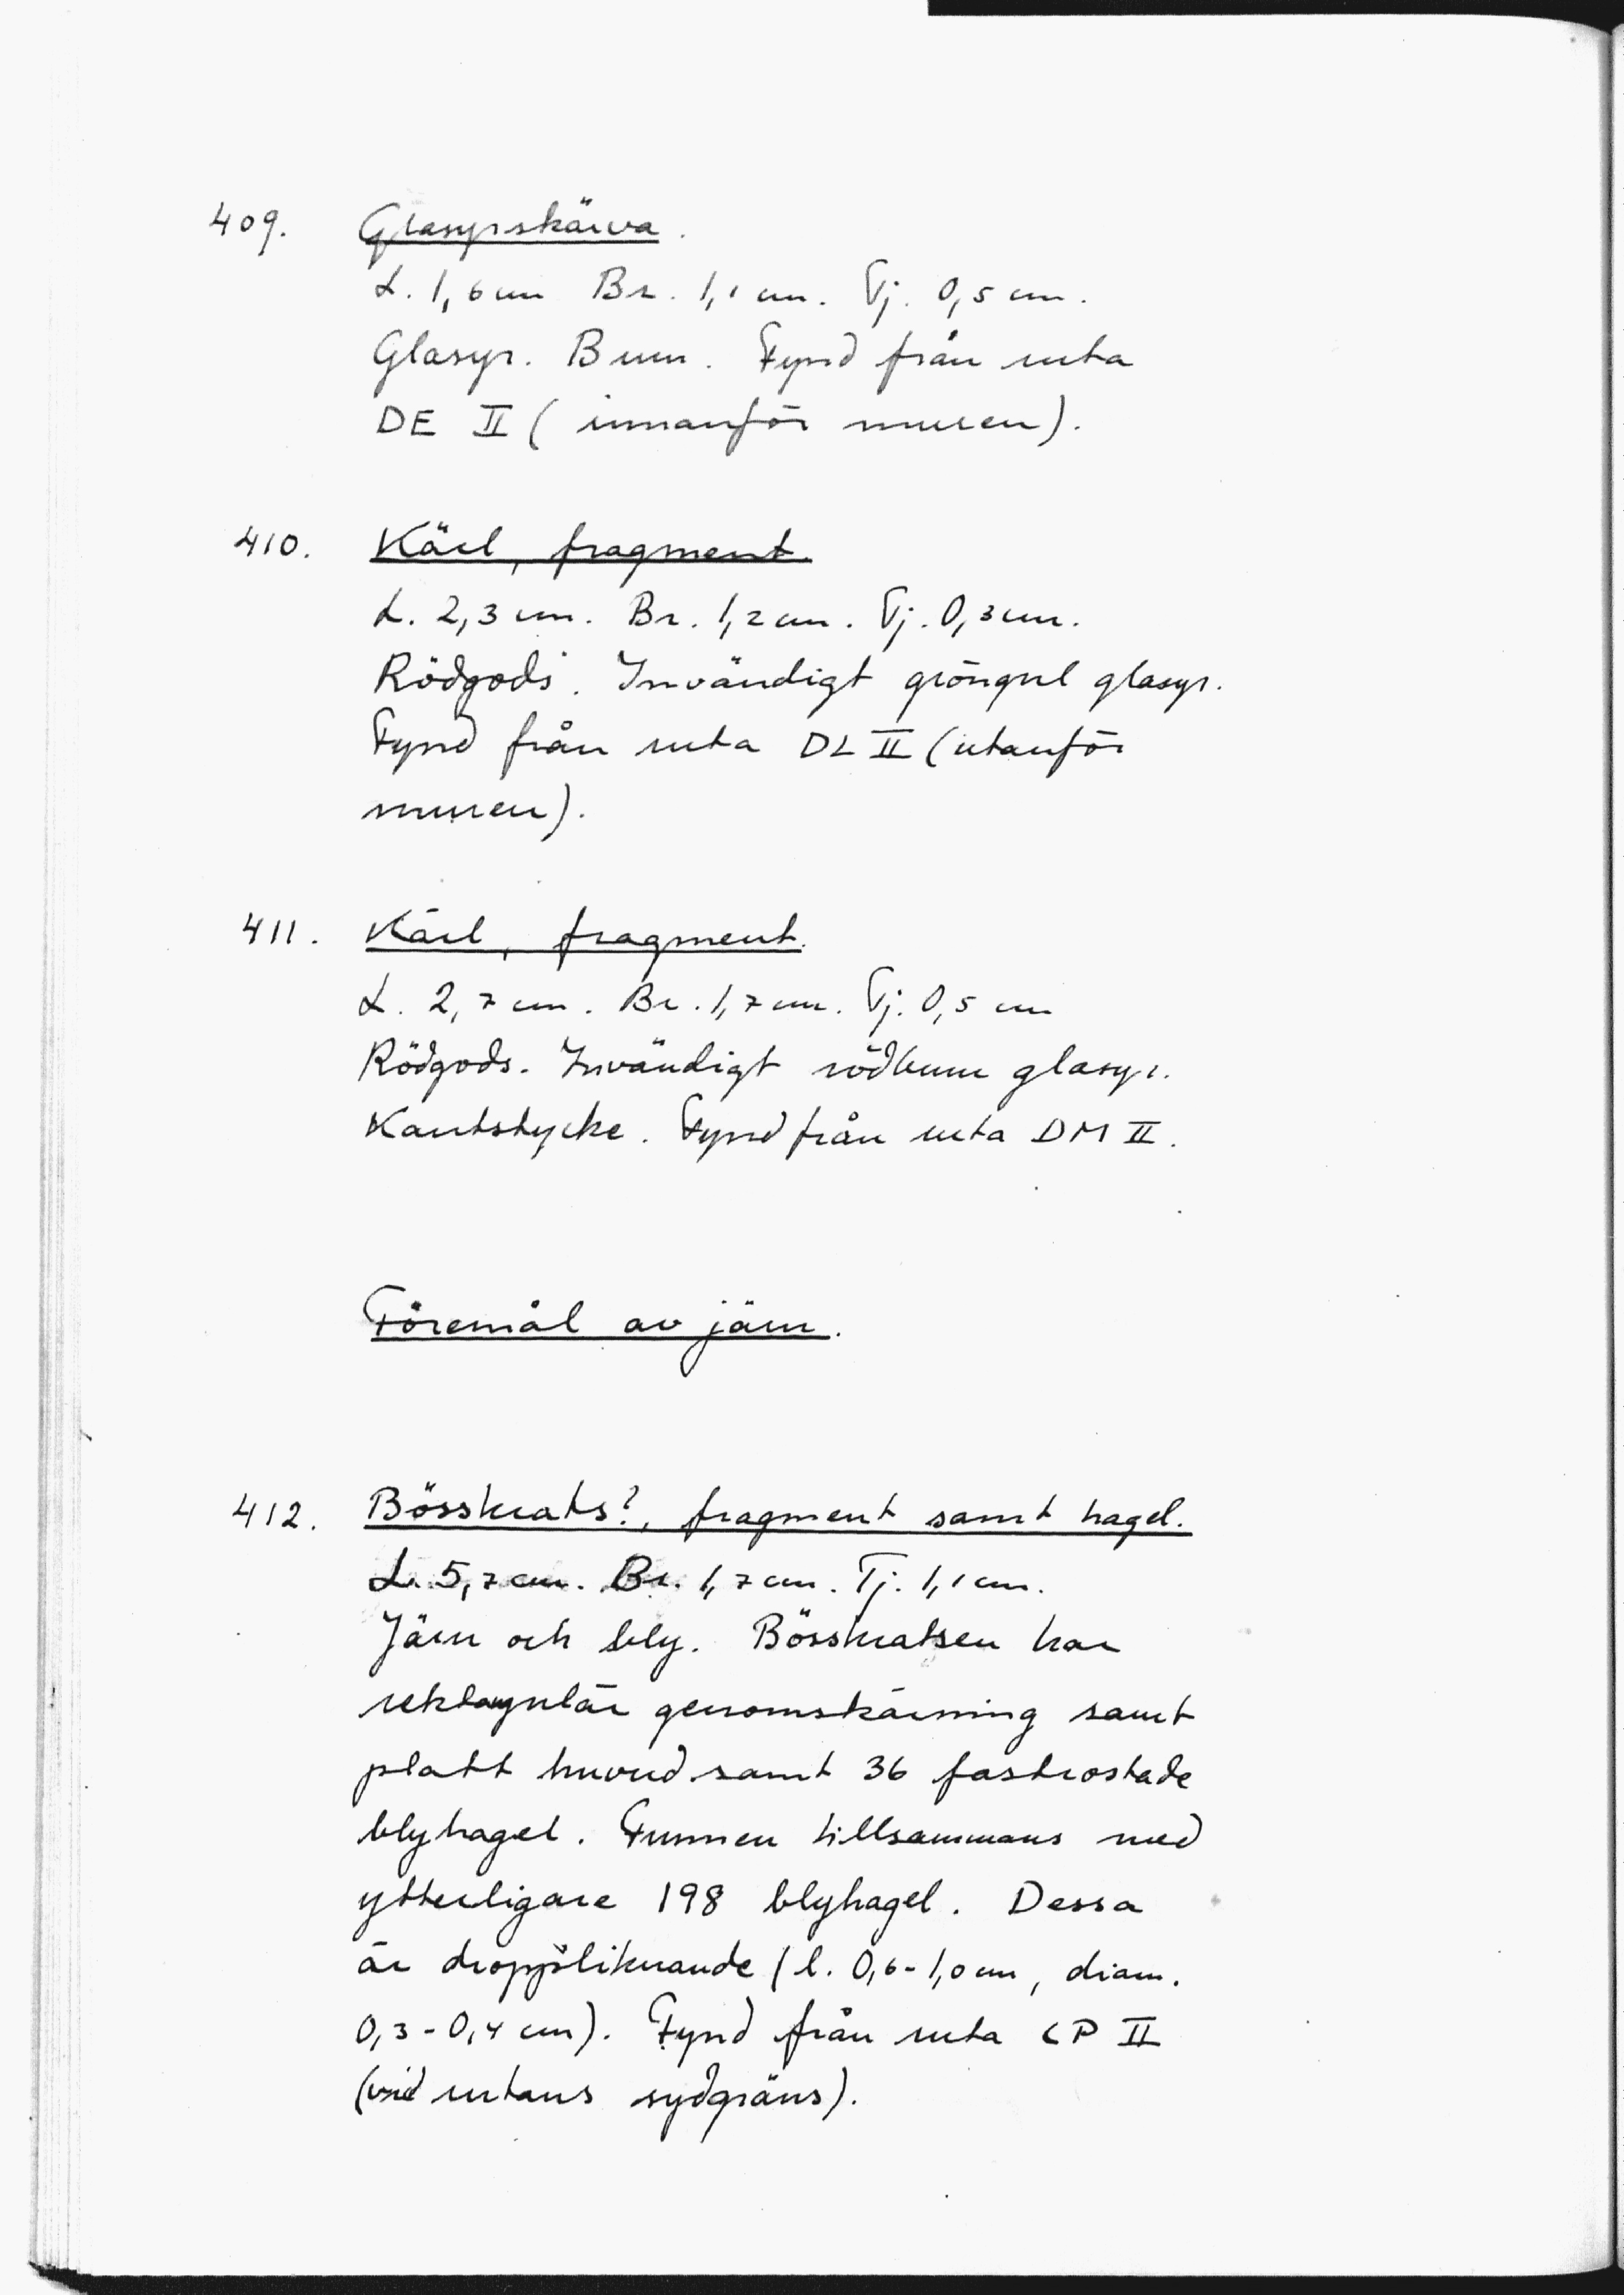 409. Glasyrskärva.
L. 1,6 cm Br. 1,1 cm. Tj. 0,5 cm.
Glasyr. Brun. Fynd från ruta
DE II (innanför muren).
410. Kärl, fragment.
L. 2,3 cm. Br. 1,2 cm. Tj. 0,3 cm.
Rödgods. Invändigt gröngul glasyr.
Fynd från ruta DL II (utanför
muren).
411. Kärl, fragment.
L. 2,7 cm. Br. 1,7 cm. Tj. 0,5 cm
Rödgods. Invändigt rödbrun glasyr.
Kantstycke. Fynd från ruta DM II.
Föremål av järn.
412. Bösskrats?, fragment samt hagel.
L. 5,7 cm. Br. 1,7 cm. Tj. 1,1 cm.
Järn och bly. Bösskratsen har
rektagulär genomskärning samt
platt huvud samt 36 fastrostade
blyhagel. Funnen tillsammans med
ytterligare 198 blyhagel. Dessa
är droppliknande (l. 0,6-1,0 cm, diam.
0,3-0,4 cm). Fynd från ruta CP II
(vid rutans sydgräns).